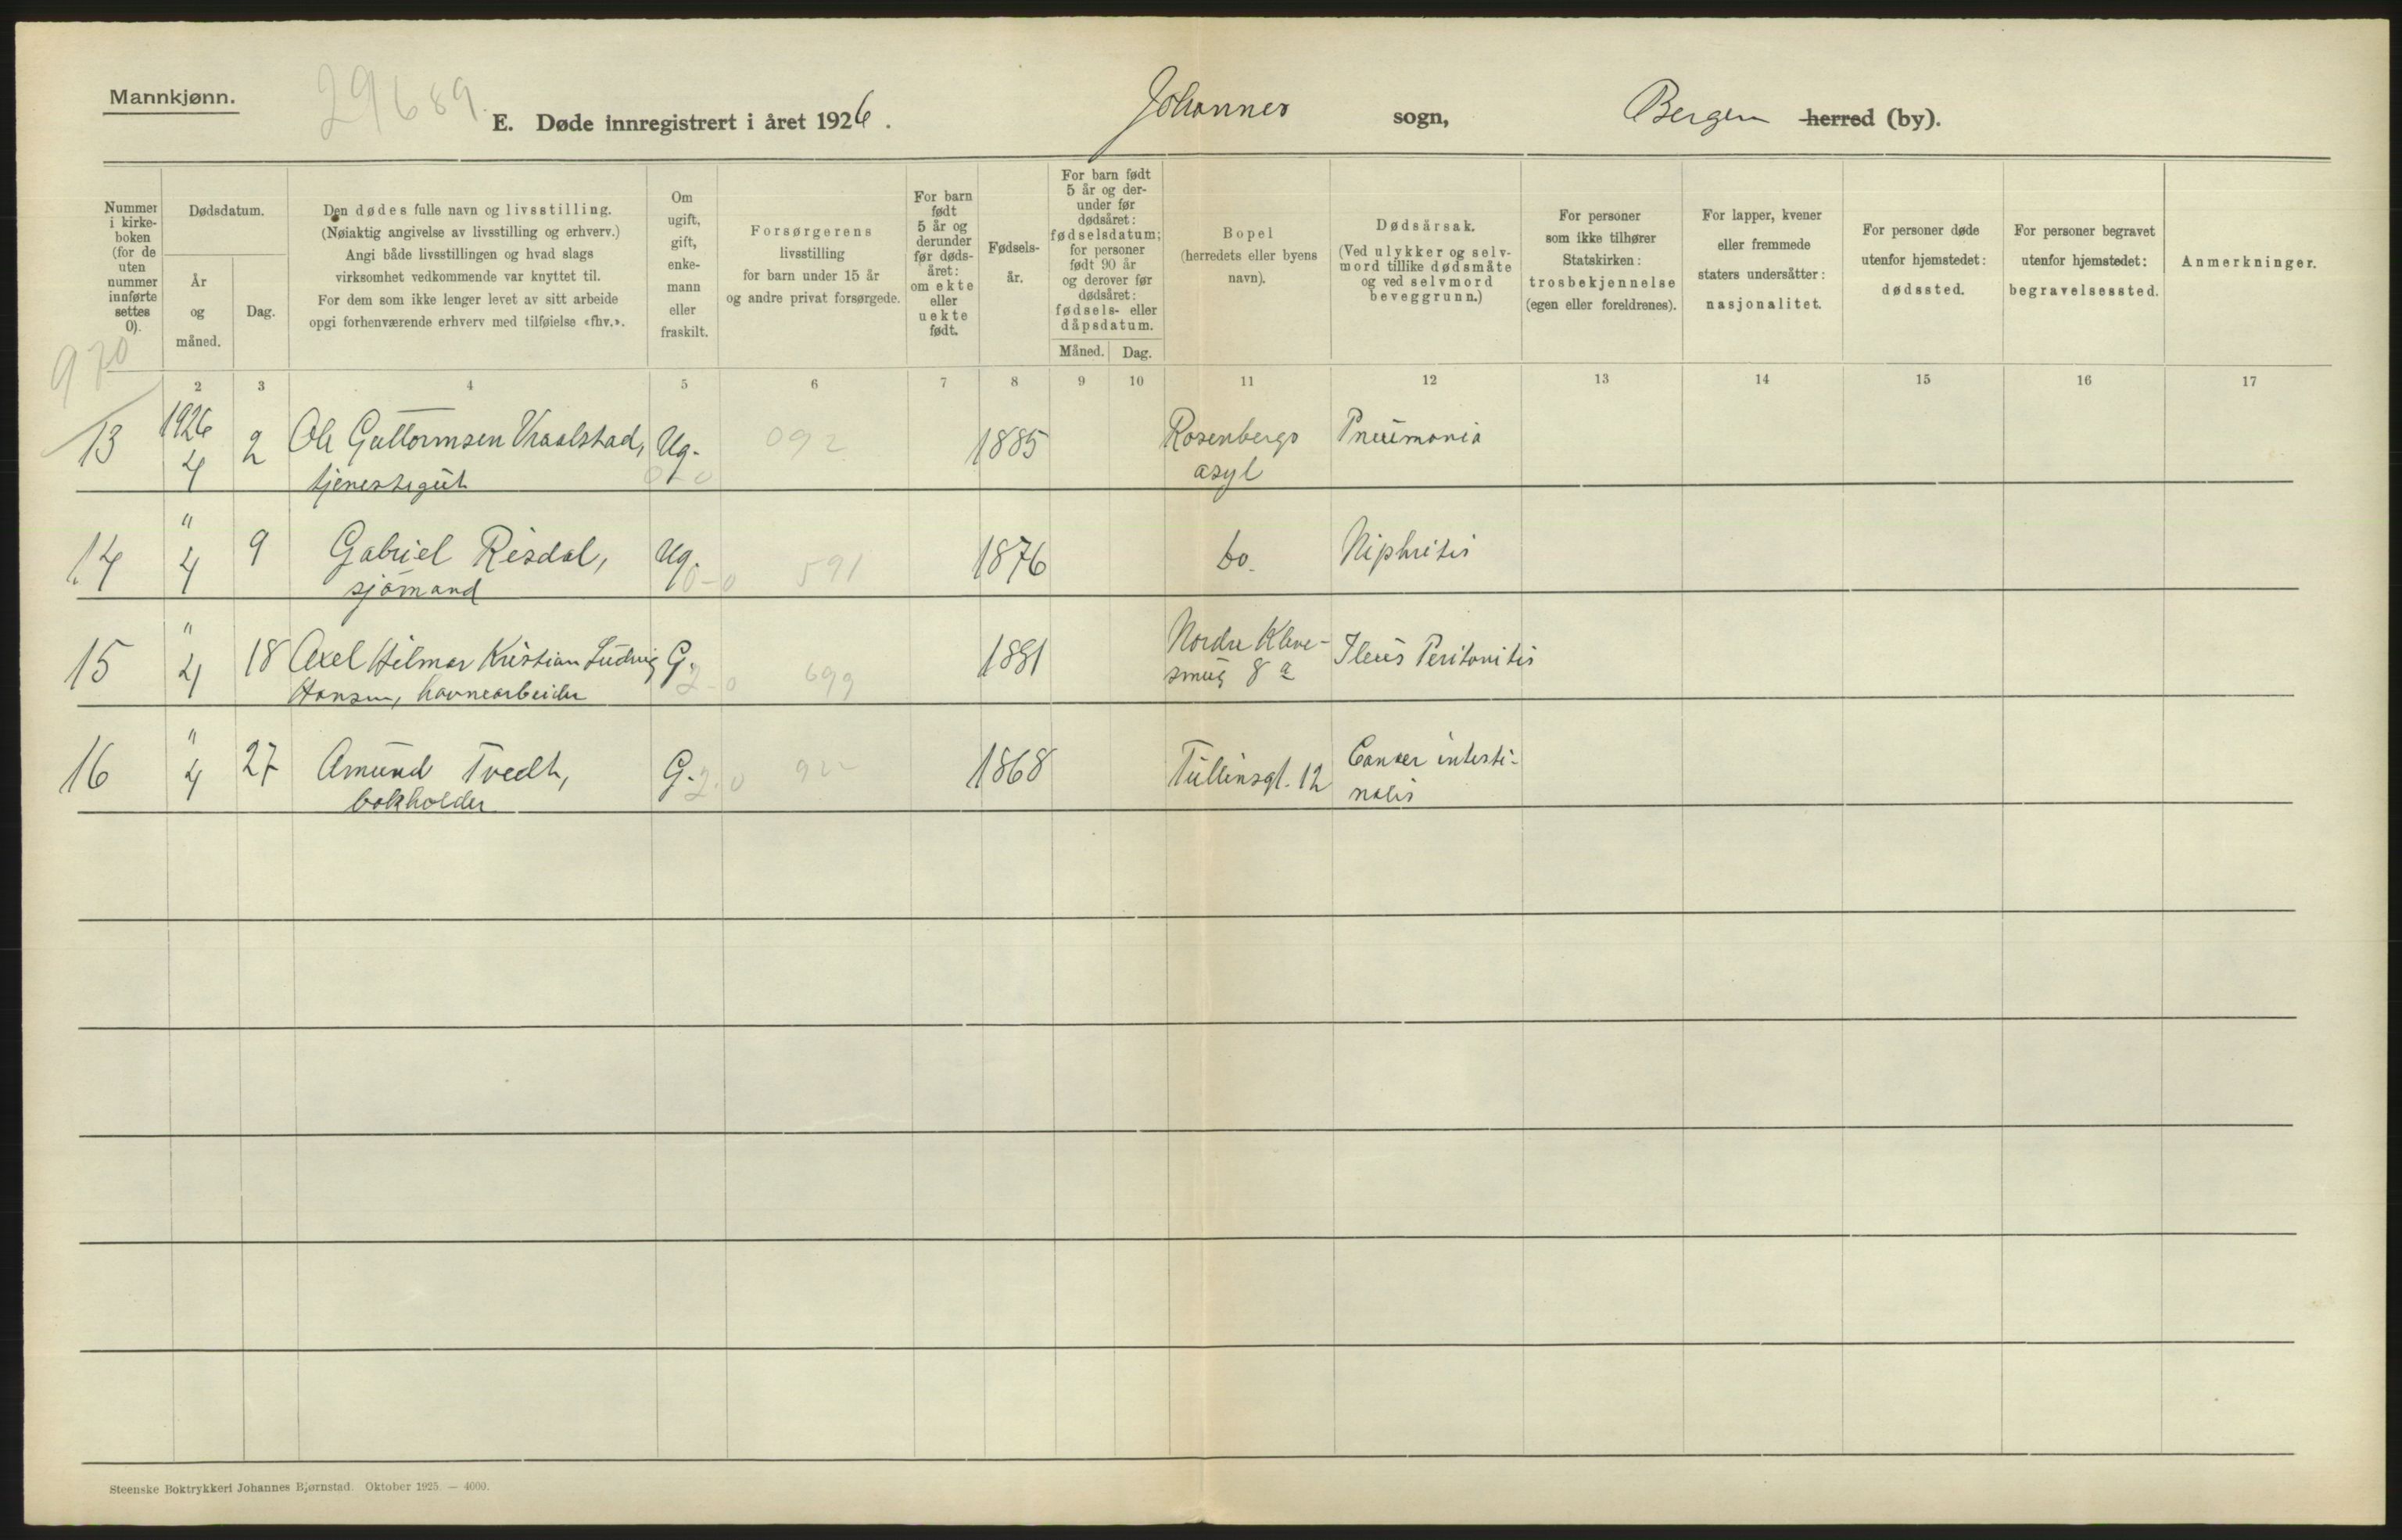 Mannkjønn.
29689.
E. Døde innregistrert i året 1926.
Johannes sogn,
Bergen herred (by).
Nummer i kirkeboken (for de uten nummer innførte settes 0).
Dødsdatum.
År og måned.
Dag.
Den dødes fulle navn og livsstilling.
(Nøiaktig angivelse av livsstilling og erhverv.)
Angi både livsstillingen og hvad slags
virksomhet vedkommende var knyttet til.
For dem som ikke lenger levet av sitt arbeide
opgi forhenværende erhverv med tilføielse «fhv.».
Om ugift, gift, enkemann eller fraskilt.
Forsørgerens
livsstilling
for barn under 15 år
og andre privat forsørgede.
For barn født 5 år og derunder før dødsåret: om ekte eller uekte født.
Fødselsår.
For barn født 5 år og derunder før dødsåret: fødselsdatum; for personer født 90 år og derover før dødsåret: fødsels- eller dåpsdatum.
Måned. Dag.
Bopel
(herredets eller byens
navn).
Dødsårsak.
(Ved ulykker og selvmord tillike dødsmåte og ved selvmord beveggrunn.)
For personer
som ikke tilhører
Statskirken:
trosbekjennelse
(egen eller foreldrenes).
For lapper, kvener
eller fremmede
staters undersåtter:
nasjonalitet.
For personer døde
utenfor hjemstedet:
dødssted.
For personer begravet
utenfor hjemstedet:
begravelsessted.
Anmerkninger.
970
2 3 4 5 6 7 8 9 10 11 12 13 14 15 16 17
13 1926 4 2 Ole Guttormsen Vraalstad, Ug. 092 1885 Rosenbergs Pneumonia
tjenestegut asyl
14 " 4 9 Gabriel Risdal, Ug. 0-0 591 1876 do. Niphritis
sjømand
15 " 4 18 Axel Hilmar Kristian Ludvig G. 2-0 699 1881 Nordre Kleve- Ileus Peritonitis
Hansen, havnearbeider smug 8 a
16 " 4 27 Amund Tvedt, G. 2-0 922 1868 Tullinsgt. 12 Cancer intesti-
bokholder nalis
Steenske Boktrykkeri Johannes Bjørnstad. Oktober 1925. — 4000.